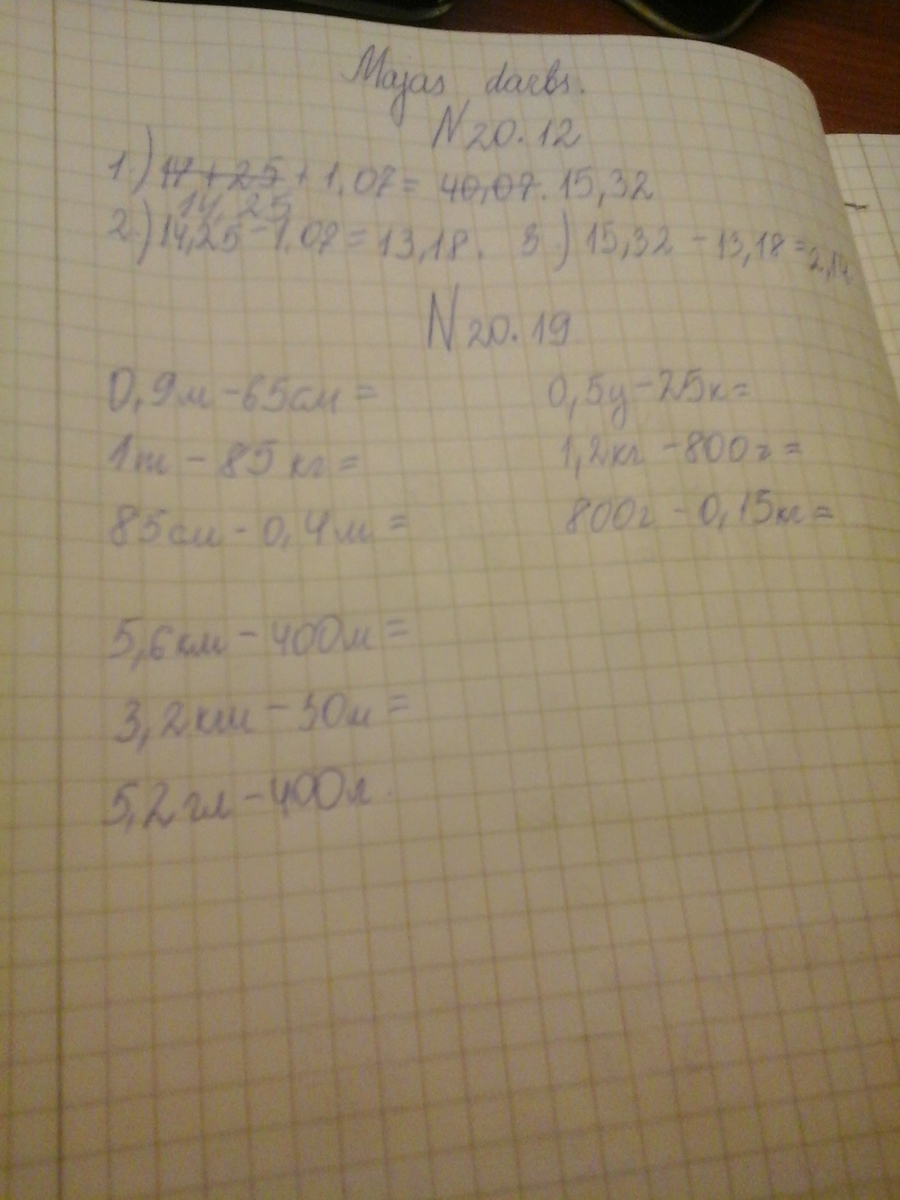 Majas darbs.
N 20.12
1.) 17 + 25 + 1,07 = 40,07. 15,32
14,25
2.) 14,25 - 1.07 = 13,18. 3.) 15,32 - 13,18 = 2,14
N 20.19
0,9м - 65см = 0,5ц - 25к =
1т - 85 кг = 1,2кг - 800г =
85см - 0,4м = 800г - 0,15кг =
5,6км - 400м =
3,2км - 50м =
5,2гл - 400л